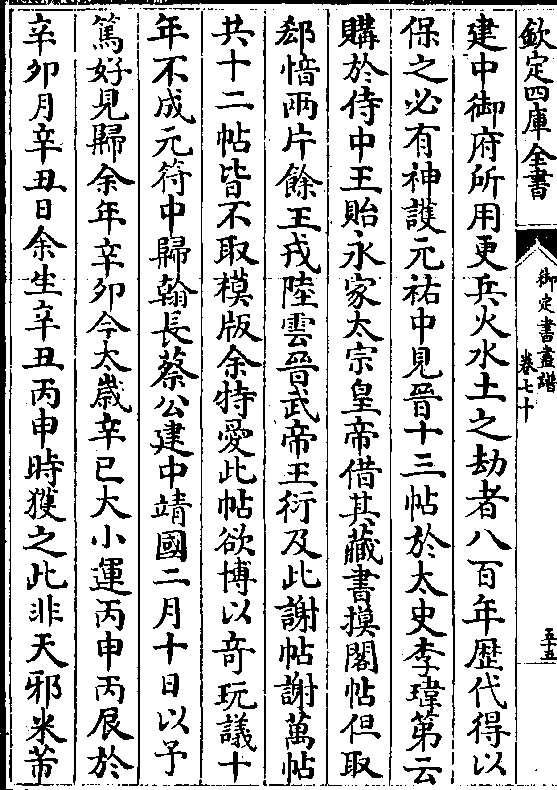 欽定四庫全書
御定書畫譜
卷七十
五十五
建中御府所用更兵火水土之劫者八百年歴代得以
保之必有神護元祐中見晉十三帖於太史李瑋第云
購於侍中王貽永家太宗皇帝借其藏書摸閣帖但取
郄愔兩片餘王戎陸雲晉武帝王衍及此謝帖謝萬帖
共十二帖皆不取模版余特愛此帖欲博以奇玩議十
年不成元符中歸翰長蔡公建中靖國二月十日以予
篤好見歸余年辛卯今太歲辛巳大小運丙申丙辰於
辛卯月辛丑日余生辛丑丙申時獲之此非天邪米芾